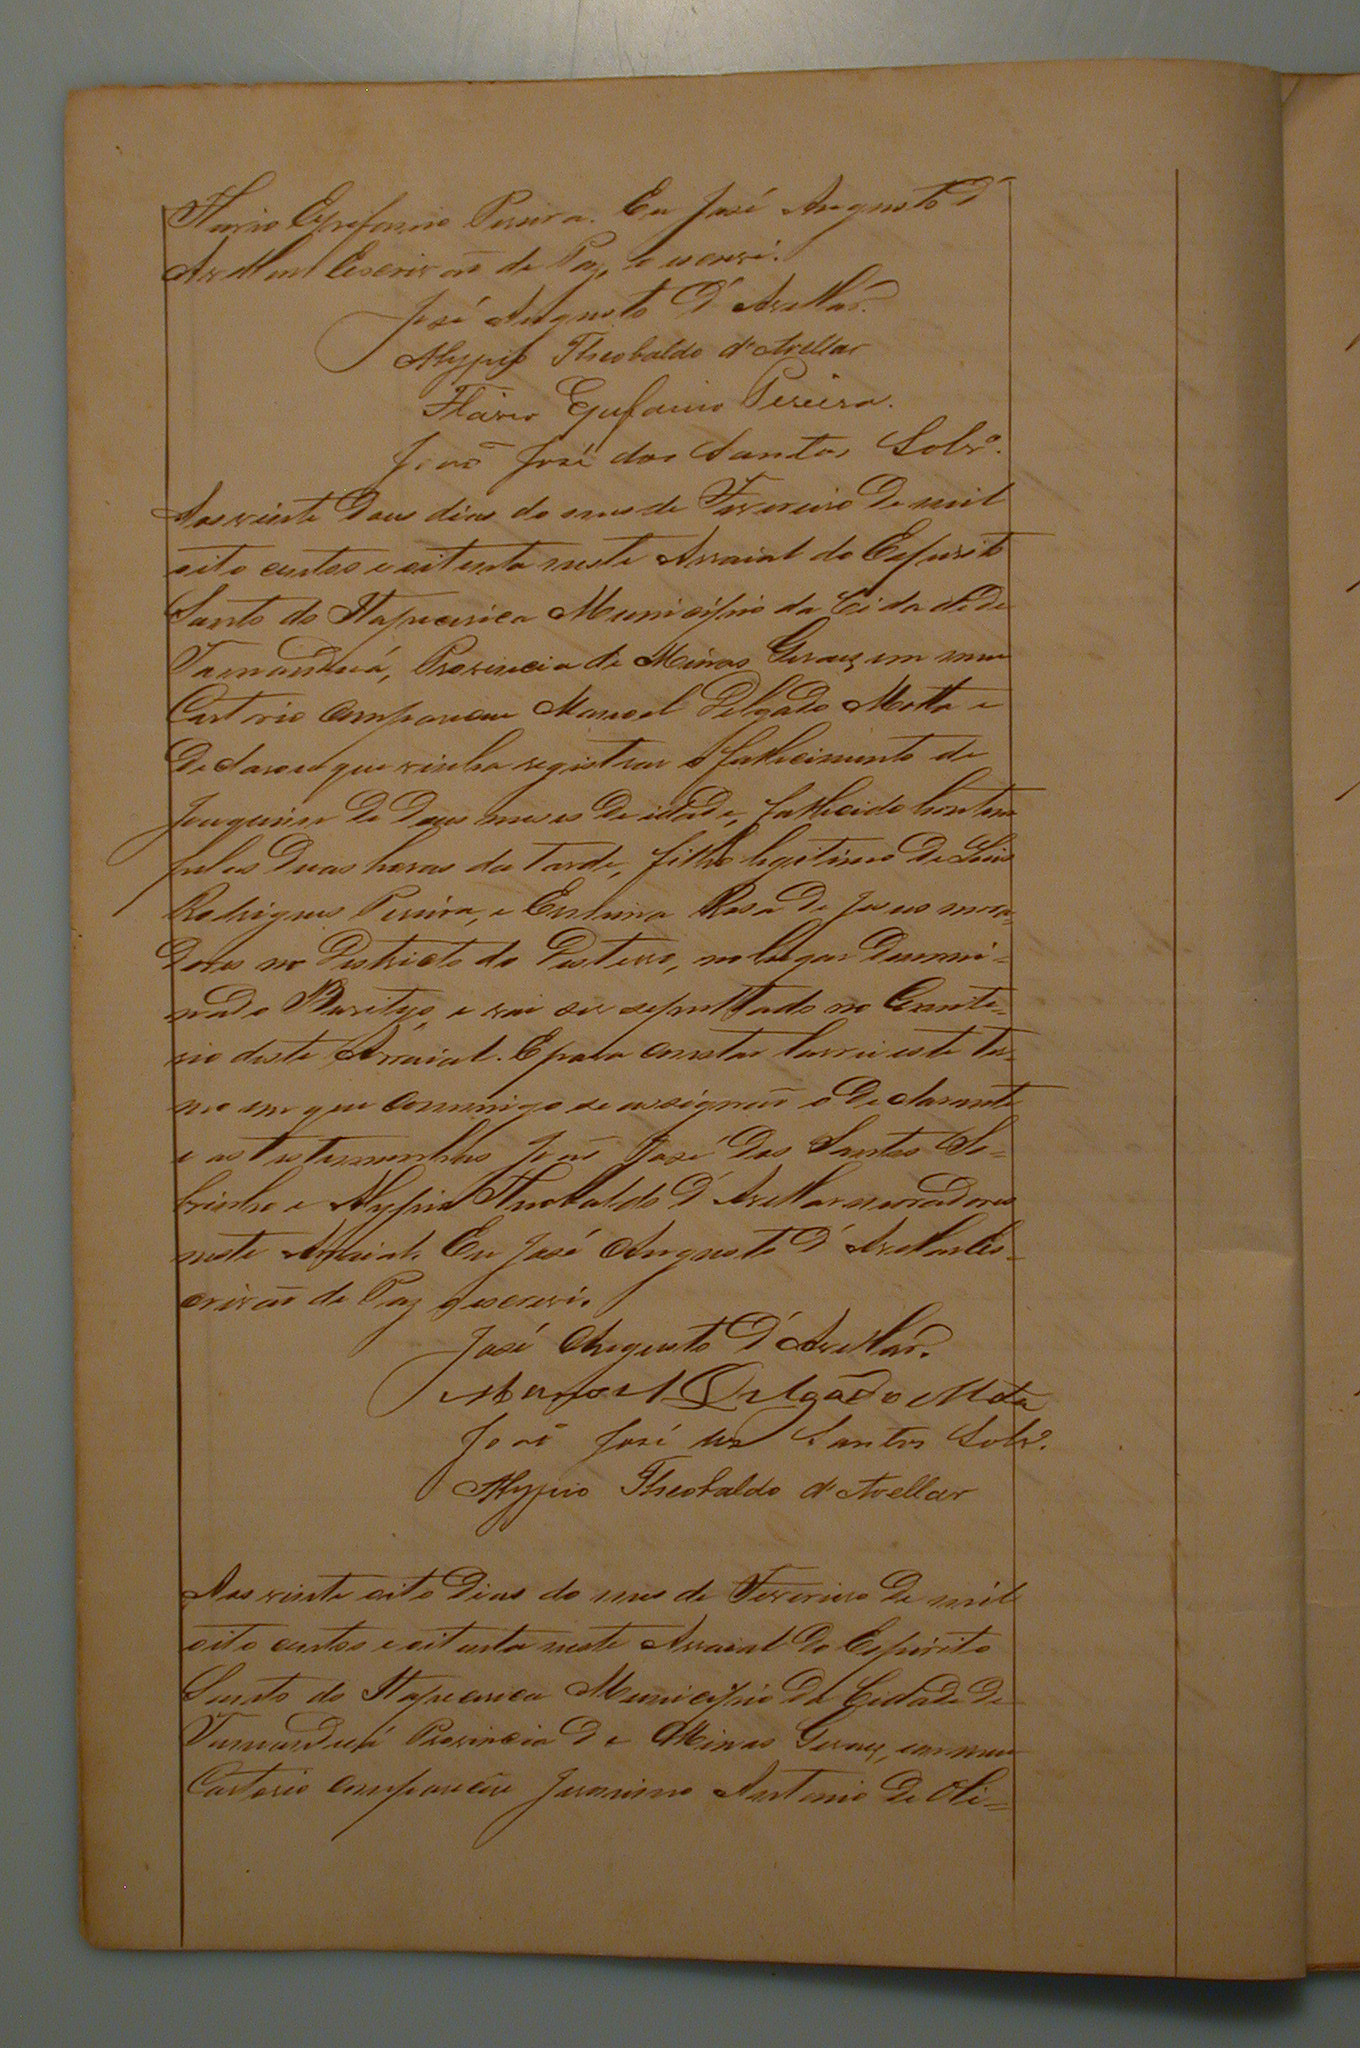 Flavio Epefanio Pereira. Eu José Augusto d'
Avellar Escrivaõ de Paz, o escrevi.
José Augusto d'Avellár.
Alypio Theobaldo d'Avellar
Flavio Epifanio Pereira.
Joaõ José dos Santos Sobrº.
Aos vinte dous dias do mes de Fevereiro de mil
oito centos e oitenta neste Arraial do Espirito
Santo do Itapecerica Municipio da Cidade de
Tamanduá, Provincia de Minas Geraes, em meu
Cartorio compareceu Manoel Delgado Motta e
declarou que vinha registrar o fallecimento de
Joaquim de dous meses de idade, fallecido hontem
pelas duas horas da tarde, filho legitimo de Luis
Rodrigues Pereira, e Rosa de Jesus mora-
dores no Districto do Desterro, no lugar denomi-
nado Buritys, e vai ser sepultado no Cemite-
rio deste Arraial. E para constar lavrei este ter-
mo em que commigo se assignaõ o declarante
e as testemunhas Joaõ José dos Santos So-
brinho e Alypio Theobaldo d'Avellar moradores
neste Arraial. Eu José Augusto d'Avellar Es-
crivaõ de Paz o escrevi.
José Augusto d'Avellár.
Manoel Delgado Mota
Joaõ José dos Santos Sobrº.
Alypio Theobaldo d'Avellar
Aos vinte oito dias do mes de Fevereiro de mil
oito centos e oitenta neste Arraial do Espirito
Santo do Itapecerica Municipio da Cidade de
Tamanduá Provincia de Minas Geraes, em meu
Cartorio compareceu Jeronimo Antonio de Oli-